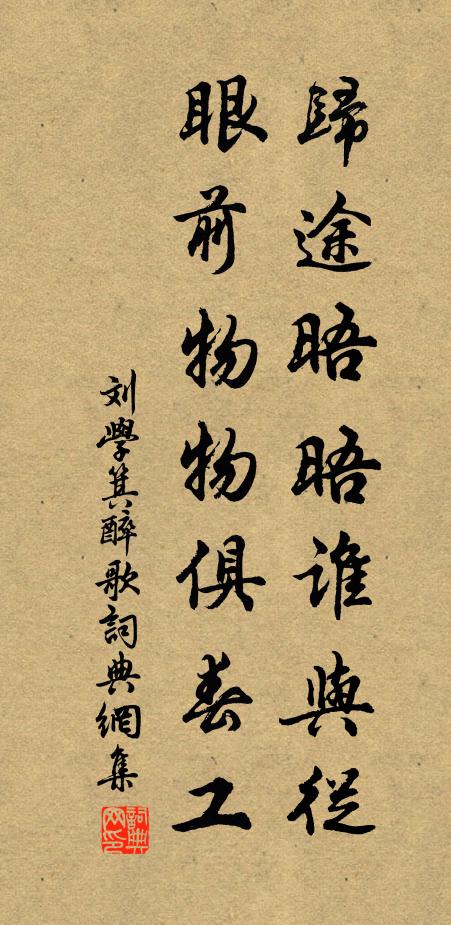 歸途晤晤谁與從
眼前物物俱春工
刘學箕醉歌詞典網集
詞典网印